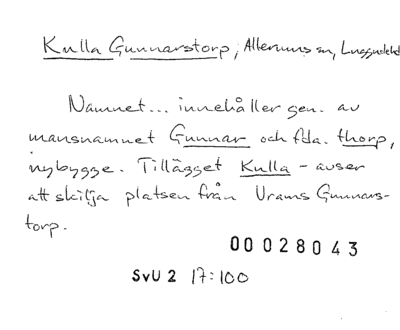 Kulla Gunnarstorp, Allerums sn, Luggude hd
Namnet... innehåller gen. av
mansnamnet Gunnar och fda. thorp,
nybygge. Tillägget Kulla - avser
att skilja platsen från Vrams Gunnars-
torp.
00028043
SvU 2 17:100